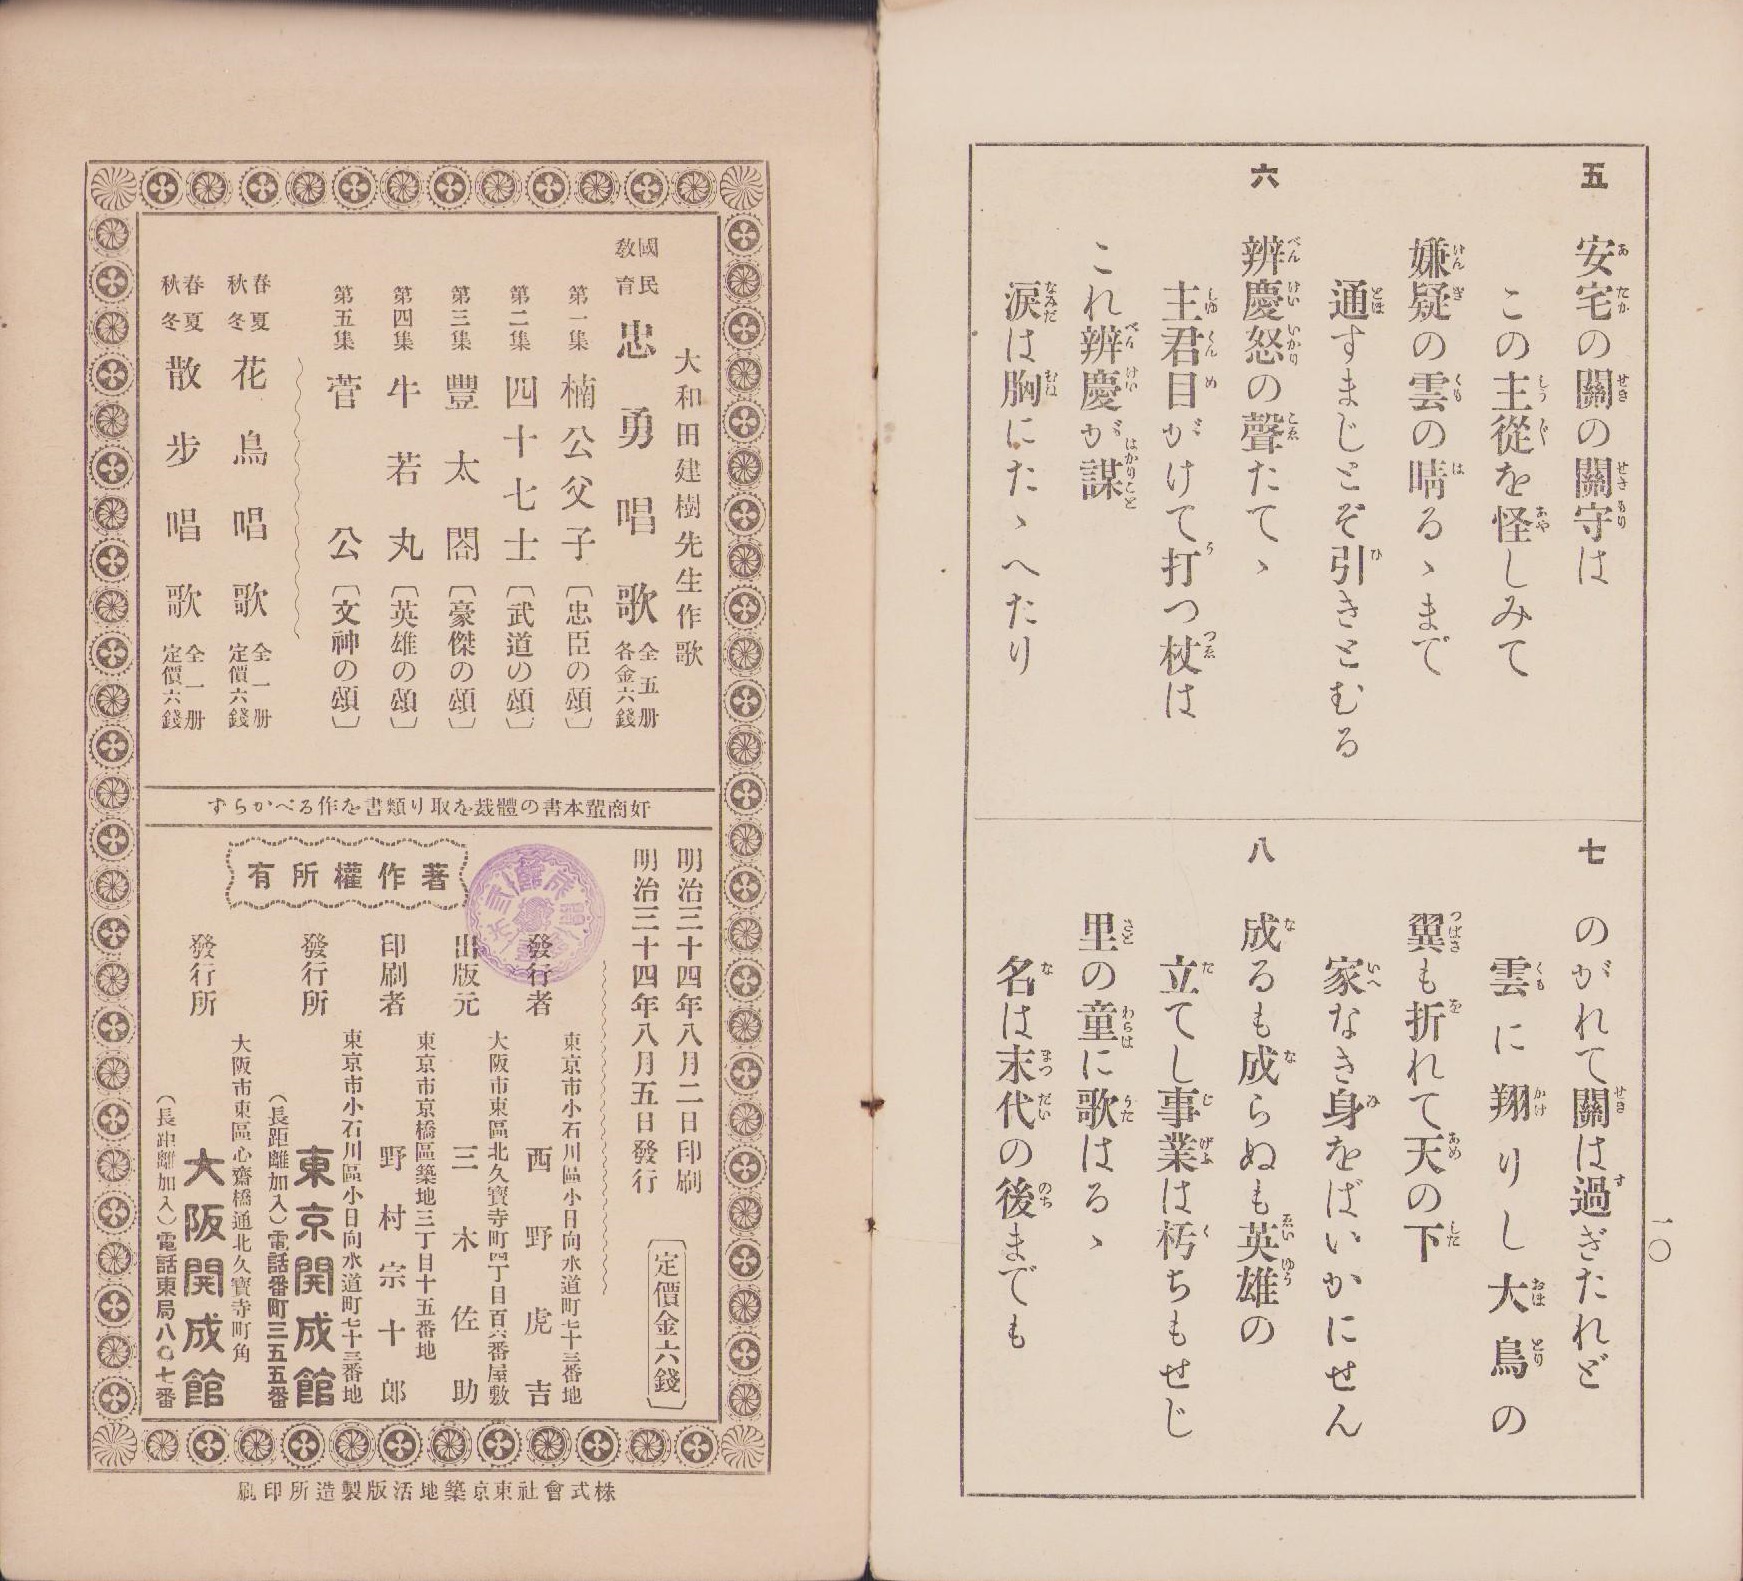 五
安宅の關の關守は
この主從を怪しみて
嫌疑の雲の晴るゝまで
通すまじとぞ引きとむる
六
辨慶怒の聲たてゝ
主君目がけて打つ杖は
これ辨慶が謀
涙は胸にたゝへたり
七
のがれて關は過ぎたれど
雲に翔りし大鳥の
翼も折れて天の下
家なき身をばいかにせん
八
成るも成らぬも英雄の
立てし事業は朽ちもせじ
里の童に歌はるゝ
名は末代の後までも
一〇
大和田建樹先生作歌
國民教育 忠勇唱歌 全五册 各金六錢
第一集 楠公父子〔忠臣の頌〕
第二集 四十七士〔武道の頌〕
第三集 豐太閤〔豪傑の頌〕
第四集 牛若丸〔英雄の頌〕
第五集 菅公〔文神の頌〕
春夏秋冬 花鳥唱歌 全一册 定價六錢
春夏秋冬 散步唱歌 全一册 定價六錢
奸商輩本書の體裁を取り類書を作るべからず
明治三十四年八月二日印刷
明治三十四年八月五日發行
定價金六錢
著作權所有
東京市小石川區小日向水道町七十三番地
發行者 西野虎吉
大阪市東區北久寶寺町四丁目百六番屋敷
出版元 三木佐助
東京市京橋區築地三丁目十五番地
印刷者 野村宗十郎
東京市小石川區小日向水道町七十三番地
發行所 東京開成館
（長距離加入）電話番町三五五番
大阪市東區心齋橋通北久寶寺町角
發行所 大阪開成館
（長距離加入）電話東局八〇七番
株式會社東京築地活版製造所印刷